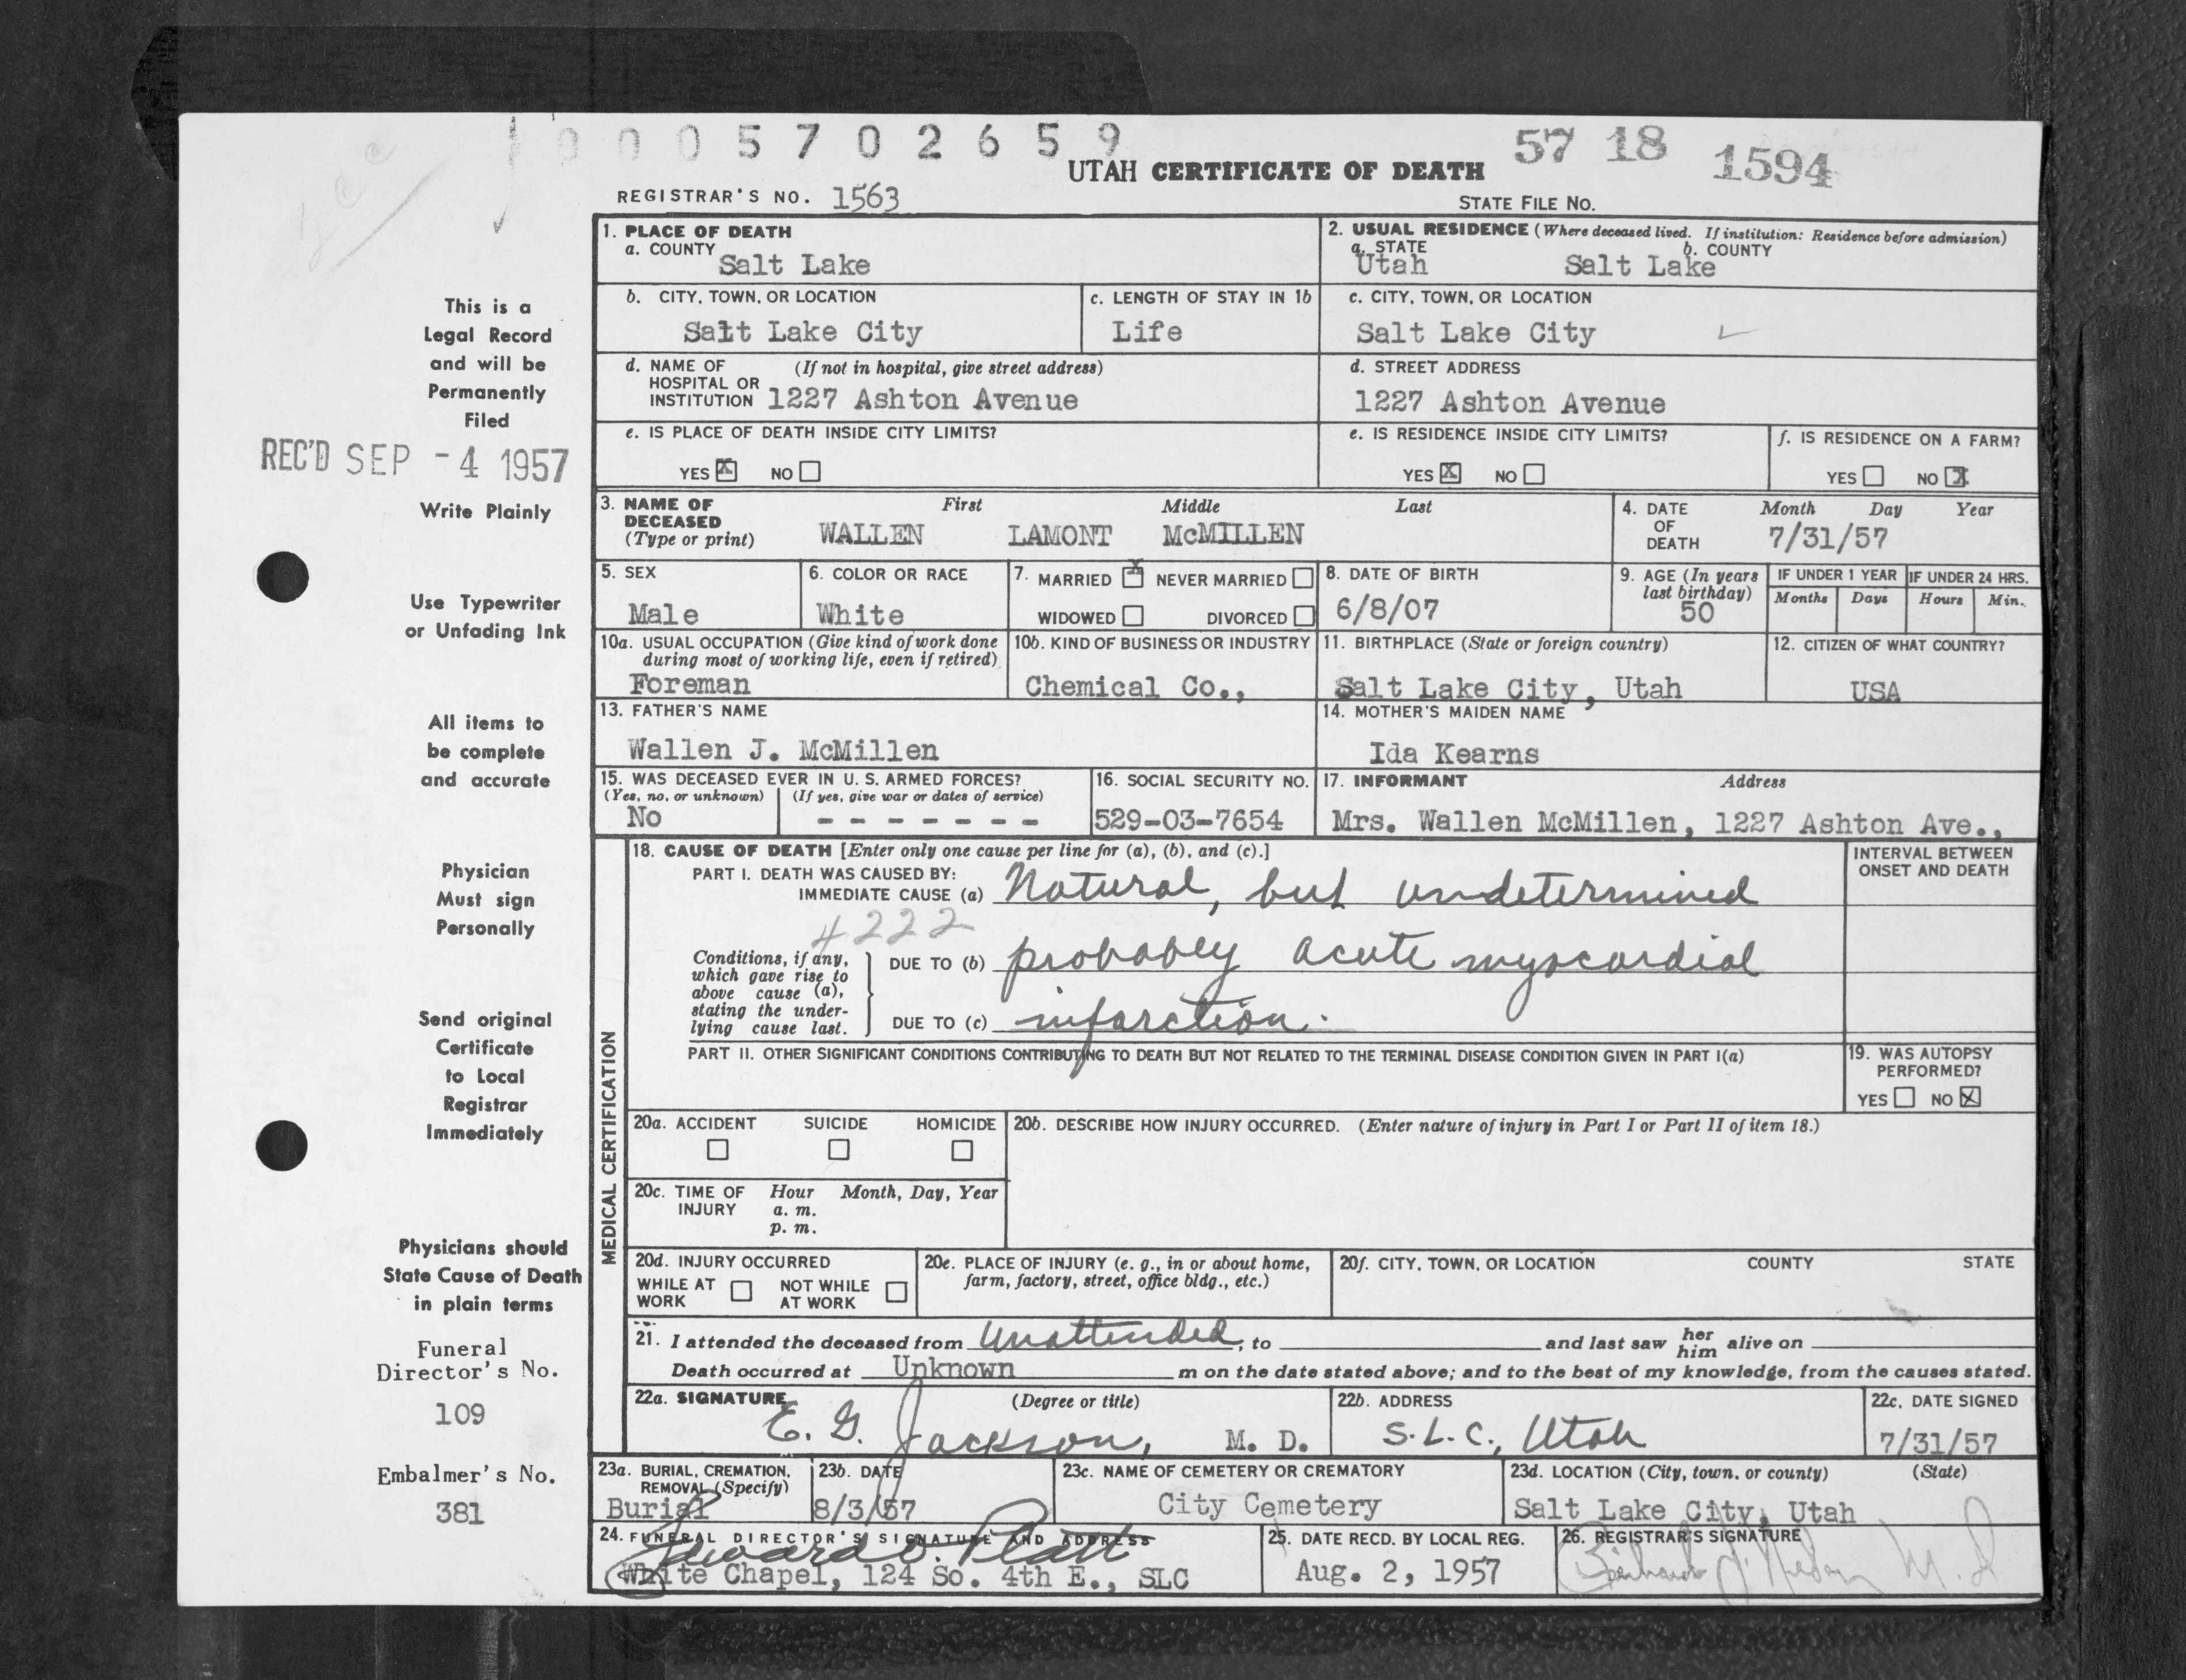 0005702659
57 18 1594
UTAH CERTIFICATE OF DEATH
REGISTRAR'S NO. 1563
STATE FILE NO.
This is a
Legal Record
and will be
Permanently
Filed
REC'D SEP -4 1957
Write Plainly
Use Typewriter
or Unfading Ink
All items to
be complete
and accurate
Physician
Must sign
Personally
Send original
Certificate
to Local
Registrar
Immediately
Physicians should
State Cause of Death
in plain terms
Funeral
Director's No.
109
Embalmer's No.
381
1. PLACE OF DEATH
a. COUNTY Salt Lake
2. USUAL RESIDENCE (Where deceased lived. If institution: Residence before admission)
a. STATE b. COUNTY
Utah Salt Lake
b. CITY, TOWN, OR LOCATION
Salt Lake City
c. LENGTH OF STAY IN 1b
Life
c. CITY, TOWN, OR LOCATION
Salt Lake City
d. NAME OF (If not in hospital, give street address)
HOSPITAL OR
INSTITUTION 1227 Ashton Avenue
d. STREET ADDRESS
1227 Ashton Avenue
e. IS PLACE OF DEATH INSIDE CITY LIMITS?
YES X NO
e. IS RESIDENCE INSIDE CITY LIMITS?
YES X NO
f. IS RESIDENCE ON A FARM?
YES NO X
3. NAME OF First Middle Last
DECEASED
(Type or print) WALLEN LAMONT McMILLEN
4. DATE Month Day Year
OF
DEATH 7/31/57
5. SEX
Male
6. COLOR OR RACE
White
7. MARRIED X NEVER MARRIED
WIDOWED DIVORCED
8. DATE OF BIRTH
6/8/07
9. AGE (In years
last birthday)
50
IF UNDER 1 YEAR IF UNDER 24 HRS.
Months Days Hours Min.
10a. USUAL OCCUPATION (Give kind of work done
during most of working life, even if retired)
Foreman
10b. KIND OF BUSINESS OR INDUSTRY
Chemical Co.,
11. BIRTHPLACE (State or foreign country)
Salt Lake City, Utah
12. CITIZEN OF WHAT COUNTRY?
USA
13. FATHER'S NAME
Wallen J. McMillen
14. MOTHER'S MAIDEN NAME
Ida Kearns
15. WAS DECEASED EVER IN U. S. ARMED FORCES?
(Yes, no, or unknown) (If yes, give war or dates of service)
No - - - - - - -
16. SOCIAL SECURITY NO.
529-03-7654
17. INFORMANT Address
Mrs. Wallen McMillen, 1227 Ashton Ave.,
MEDICAL CERTIFICATION
18. CAUSE OF DEATH [Enter only one cause per line for (a), (b), and (c).]
INTERVAL BETWEEN
ONSET AND DEATH
PART I. DEATH WAS CAUSED BY:
IMMEDIATE CAUSE (a) Natural, but undetermined
4222
Conditions, if any,
which gave rise to
above cause (a),
stating the under-
lying cause last.
DUE TO (b) probably acute myocardial
DUE TO (c) infarction.
PART II. OTHER SIGNIFICANT CONDITIONS CONTRIBUTING TO DEATH BUT NOT RELATED TO THE TERMINAL DISEASE CONDITION GIVEN IN PART I(a)
19. WAS AUTOPSY
PERFORMED?
YES NO X
20a. ACCIDENT SUICIDE HOMICIDE
20b. DESCRIBE HOW INJURY OCCURRED. (Enter nature of injury in Part I or Part II of item 18.)
20c. TIME OF Hour Month, Day, Year
INJURY a. m.
p. m.
20d. INJURY OCCURRED
WHILE AT NOT WHILE
WORK AT WORK
20e. PLACE OF INJURY (e. g., in or about home,
farm, factory, street, office bldg., etc.)
20f. CITY, TOWN, OR LOCATION COUNTY STATE
21. I attended the deceased from Unattended, to and last saw her him alive on
Death occurred at Unknown m on the date stated above; and to the best of my knowledge, from the causes stated.
22a. SIGNATURE (Degree or title)
E. G. Jackson, M. D.
22b. ADDRESS
S.L.C., Utah
22c. DATE SIGNED
7/31/57
23a. BURIAL, CREMATION,
REMOVAL (Specify)
Burial
23b. DATE
8/3/57
23c. NAME OF CEMETERY OR CREMATORY
City Cemetery
23d. LOCATION (City, town, or county) (State)
Salt Lake City, Utah
24. FUNERAL DIRECTOR'S SIGNATURE AND ADDRESS
Platt
White Chapel, 124 So. 4th E., SLC
25. DATE RECD. BY LOCAL REG.
Aug. 2, 1957
26. REGISTRAR'S SIGNATURE
M. D